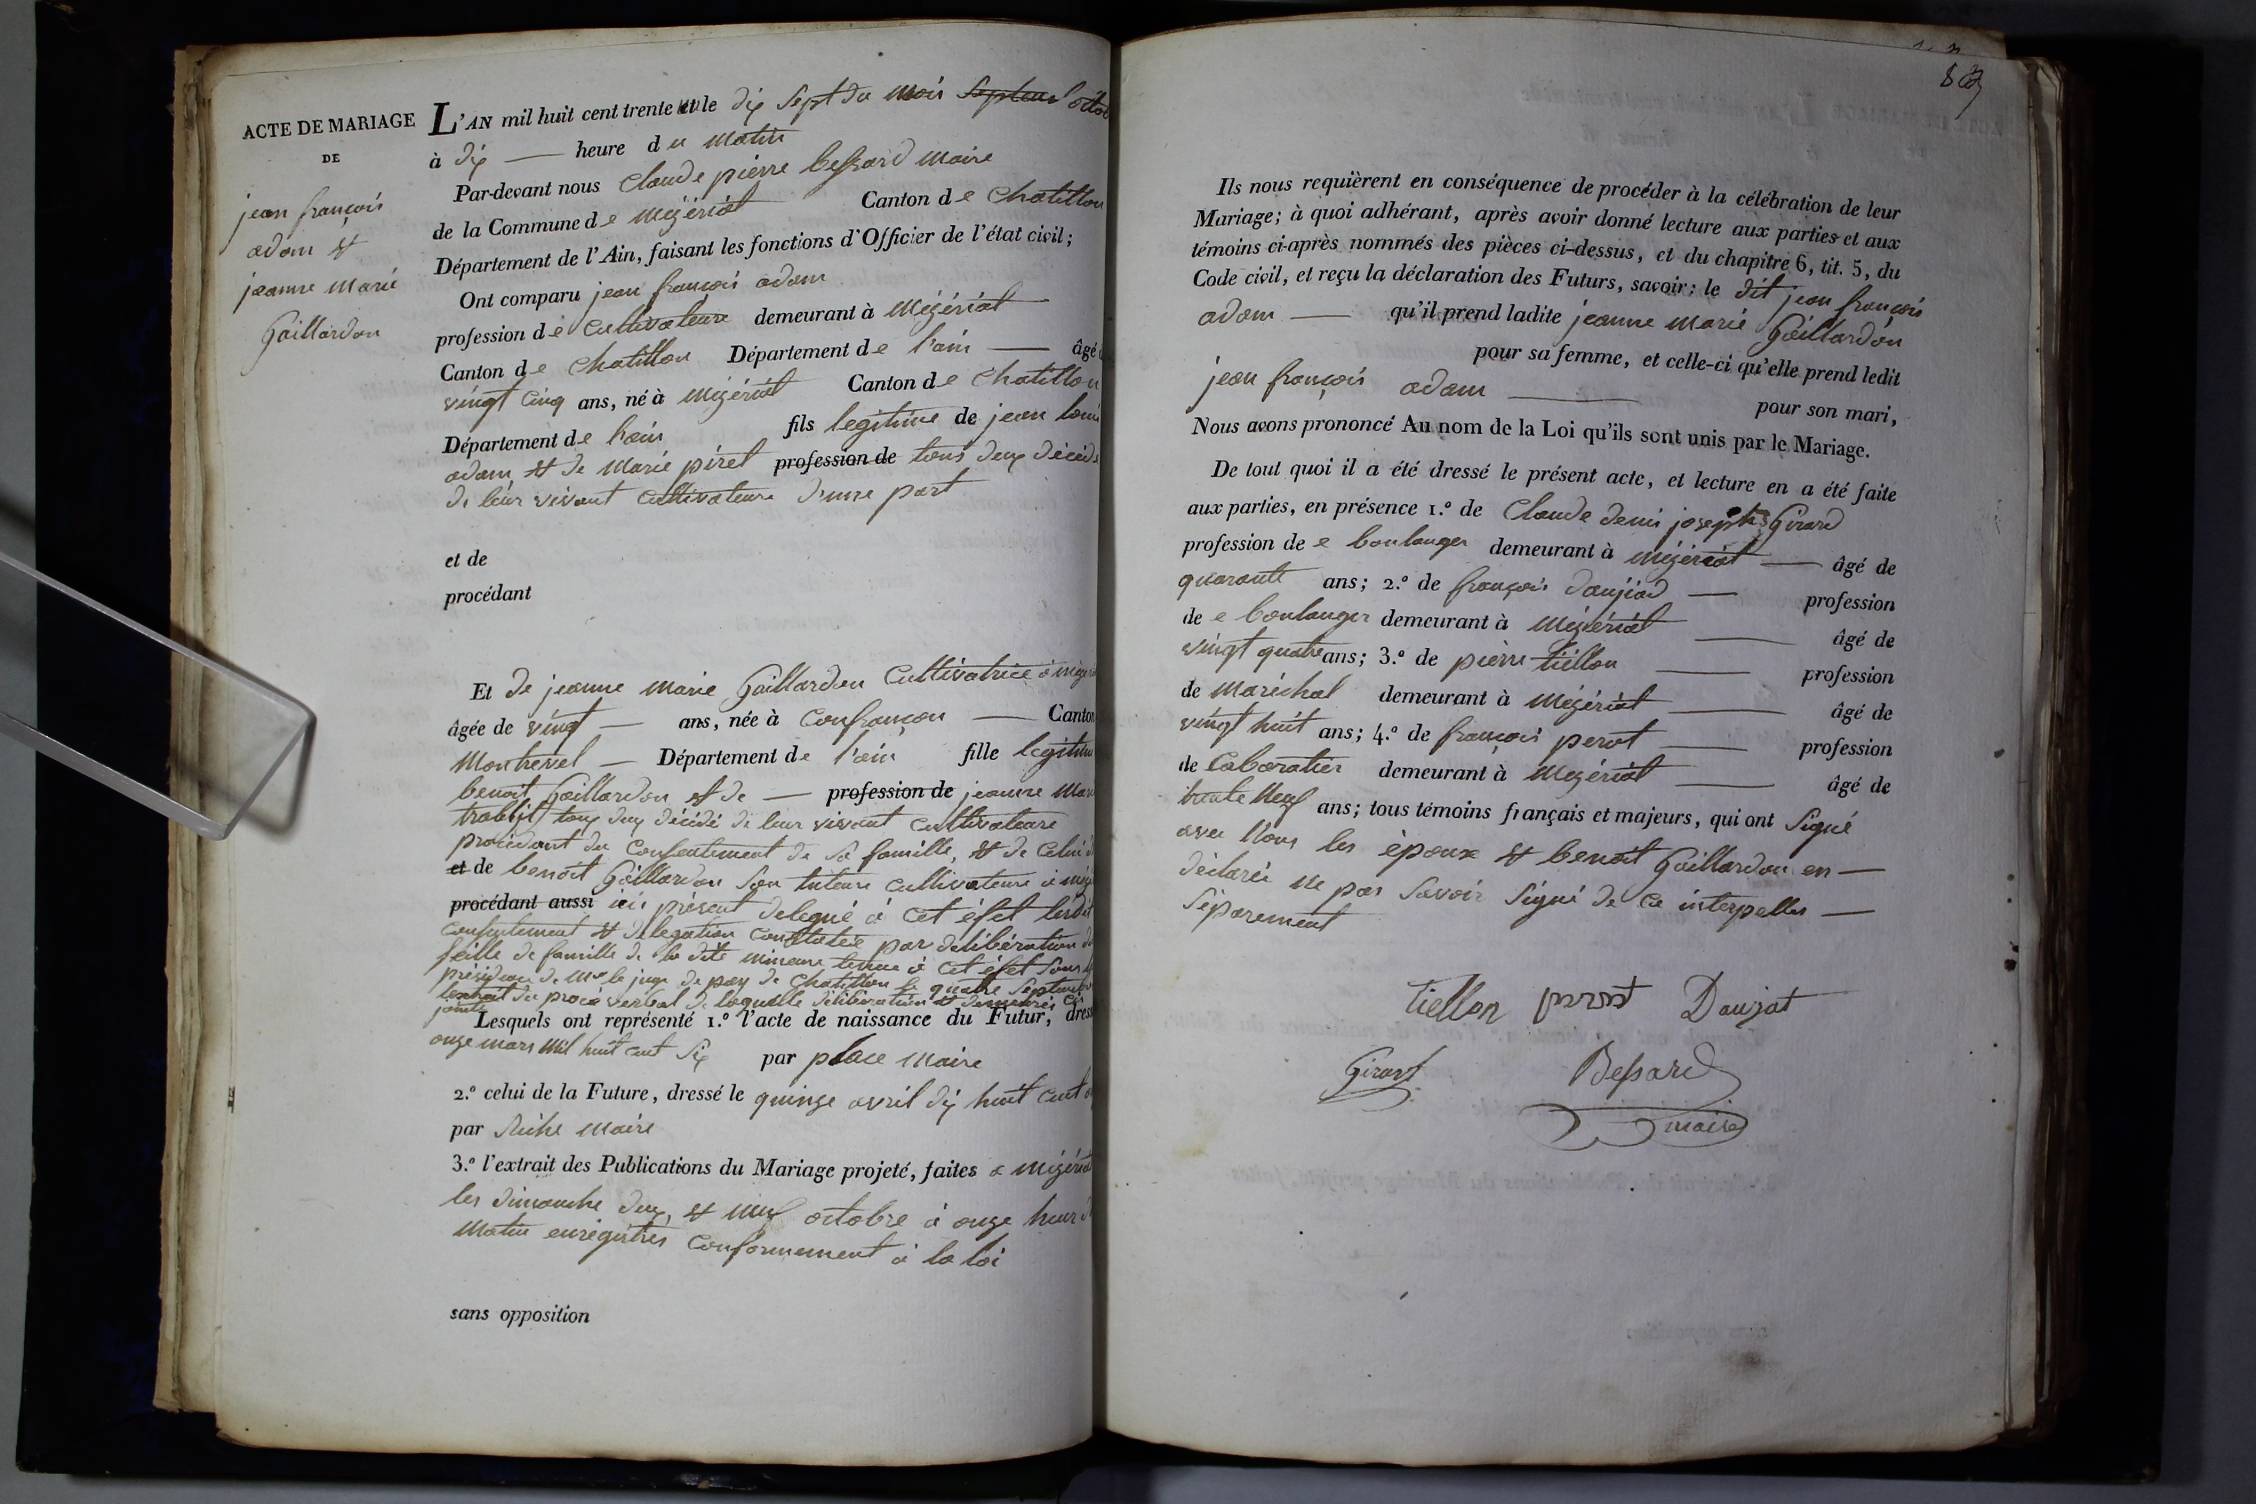 ACTE DE MARIAGE
DE
jean françois
adam et
jeanne marie
Gaillardon
L'AN mil huit cent trente un le dix sept du mois Septem octob
à dix — heure du matin
Par-devant nous Claude pierre bessard maire
de la Commune de mézériat Canton de chatillon
Département de l'Ain, faisant les fonctions d'Officier de l'état civil;
Ont comparu jean françois adam
profession de cultivateur demeurant à mézériat —
Canton de chatillon Département de l'ain — âgé
vingt cinq ans, né à mézériat Canton de chatillon
Département de l'ain fils legitime de jean loui
adam et de marie piret profession de tous deux décédé
de leur vivant cultivateurs d'une part
et de
procédant
Et de jeanne marie Gaillardon cultivatrice à mézé
âgée de vingt — ans, née à confrançon — Canton
montrevel — Département de l'ain fille legitim
benoit Gaillardon et de — profession de jeanne mar
tous deux décédé de leur vivant cultivateurs
procédant du consentement de sa famille, et de celui d
et de benoit Gaillardon son tuteur cultivateur à méz
procédant aussi ici présent delegué à cet éfet lesdit
consentement et délégation constatée par délibération du
seille de famille de la dite mineure tenue à cet éfet sous la
présidence de mr le juge de paix de chatillon le quatre septembr
lextrait du procé verbal de laquelle délibération et demeuré ci
joint
Lesquels ont représenté 1.° l'acte de naissance du Futur, dress
onze mars mil huit cent six par place maire
2.° celui de la Future, dressé le quinze avril dix huit cent
par Riche maire
3.° l'extrait des Publications du Mariage projeté, faites a mézériat
les dimanche deux et neuf octobre à onze heur d
matin enregistrés conformement à la loi
sans opposition
83
Ils nous requièrent en conséquence de procéder à la célébration de leur
Mariage; à quoi adhérant, après avoir donné lecture aux parties et aux
témoins ci-après nommés des pièces ci-dessus, et du chapitre 6, tit. 5, du
Code civil, et reçu la déclaration des Futurs, savoir: le dit jean françois
adam — qu'il prend ladite jeanne marie Gaillardon
pour sa femme, et celle-ci qu'elle prend ledit
jean françois adam — pour son mari,
Nous avons prononcé Au nom de la Loi qu'ils sont unis par le Mariage.
De tout quoi il a été dressé le présent acte, et lecture en a été faite
aux parties, en présence 1.° de Claude denis joseph Girard
profession de e boulanger demeurant à mézériat — âgé de
quarante ans; 2.° de françois daujad — profession
de e boulanger demeurant à mézériat — âgé de
vingt quatre ans; 3.° de pierre tiellon — profession
de maréchal demeurant à mézériat — âgé de
vingt huit ans; 4.° de françois perot — profession
de Cabaratier demeurant à mézériat — âgé de
trente neuf ans; tous témoins français et majeurs, qui ont signé
avec nous les époux et benoit Gaillardon en —
déclaré ne pas savoir signé de ce interpellés —
séparement
tiellon perrot Daujat
Girard Bessard
maire